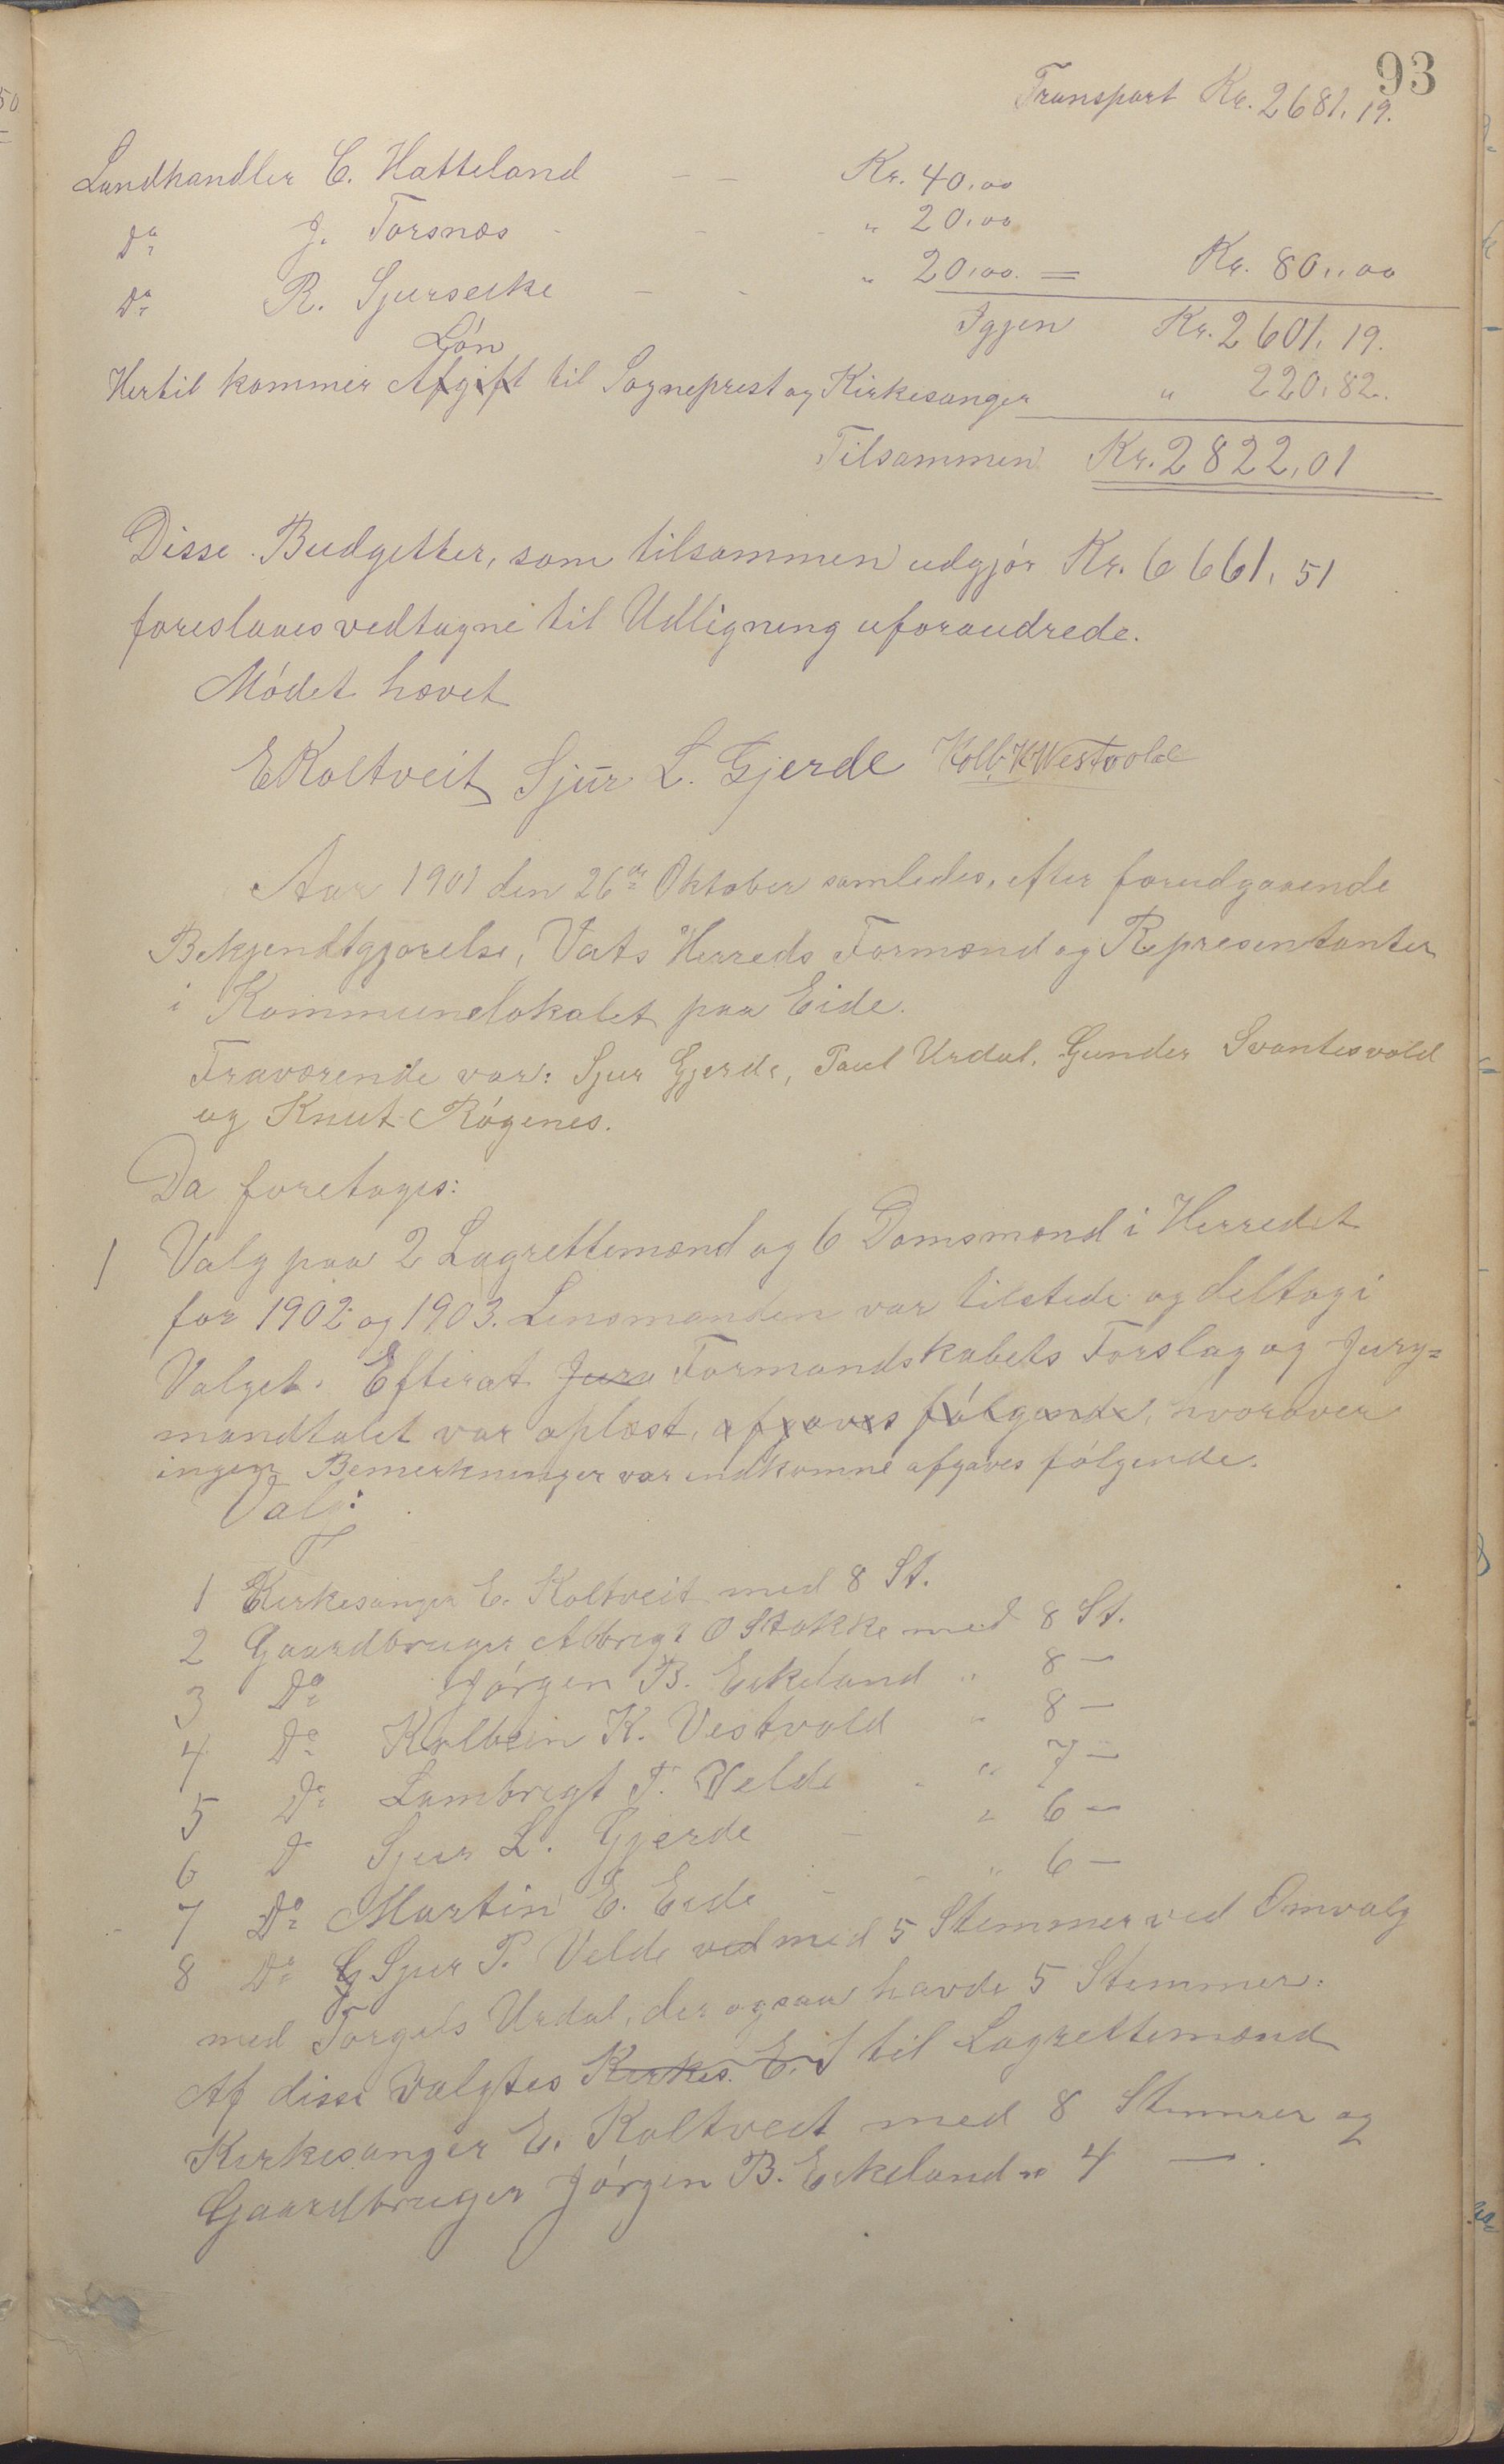 93
Transport Kr. 2681,19.
Landhandler C. Hatteland - - Kr. 40,00
Do J. Torsnæs - - - " 20,00
Do R. Sjurseike - - " 20,00. = Kr. 80,,00
Igjen Kr. 2601,19.
Løn
Hertil kommer Afgift til Sogneprest og Kirkesanger " 220,82.
Tilsammen Kr. 2822,01
Disse Budgetter, som tilsammen udgjør Kr. 6661,51
foreslaaes vedtagne til Udligning uforandrede.
Mødet hævet
E Koltveit Sjur L. Gjerde Kolb. K Westvold
Aar 1901 den 26de Oktober samledes, efter forudgaaende
Bekjendtgjørelse, Vats Herreds Formænd og Representanter
i Kommunelokalet paa Eide.
Fraværende var: Sjur Gjerde, Paul Urdal, Gunder Svantesvold
og Knut Røgenes.
Da foretoges:
1 Valg paa 2 Lagrettemænd og 6 Domsmænd i Herredet
for 1902 og 1903. Lensmanden var tilstede og deltog i
Valget. Efterat Jura Formandskabets Forslag og Jury=
mandtalet var oplæst, afgaves følgende, hvorover
ingen Bemerkninger var indkomne afgaves følgende.
Valg:
1 Kirkesanger E. Koltveit med 8 St.
2 Gaardbruger Albrigt O Stakke med 8 St.
3 Do Jørgen B. Eikeland " 8 —
4 Do Kolbein K. Vestvold " 8 —
5 Do Lambregt T. Velde " 7 —
6 Do Sjur L. Gjerde - " 6 —
7 Do Martin E. Eide - - " 6 —
8 Do G Sjur P. Velde ved med 5 Stemmer ved Omvalg
med Torgels Urdal, der ogsaa havde 5 Stemmer.
Af disse valgtes Kirkes. E. J til Lagrettemænd
Kirkesanger E. Koltveit med 8 Stemmer og
Gaardbruger Jørgen B. Eikeland " 4 — .